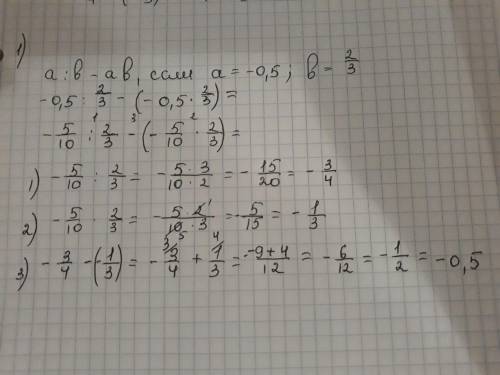 1)
a : в - a в, если a = -0,5; в = 2/3
-0,5 : 2/3 - (-0,5 · 2/3) =
-5/10 :¹ 2/3 -³ (-5/10 ·² 2/3) =
1) -5/10 : 2/3 = -5·3/10·2 = -15/20 = -3/4
2) -5/10 · 2/3 = -5·2¹/10₅·3 = -5/15 = -1/3
3) -3/4 - (-1/3) = -³3/4 + ⁴1/3 = -9+4/12 = -6/12 = -1/2 = -0,5